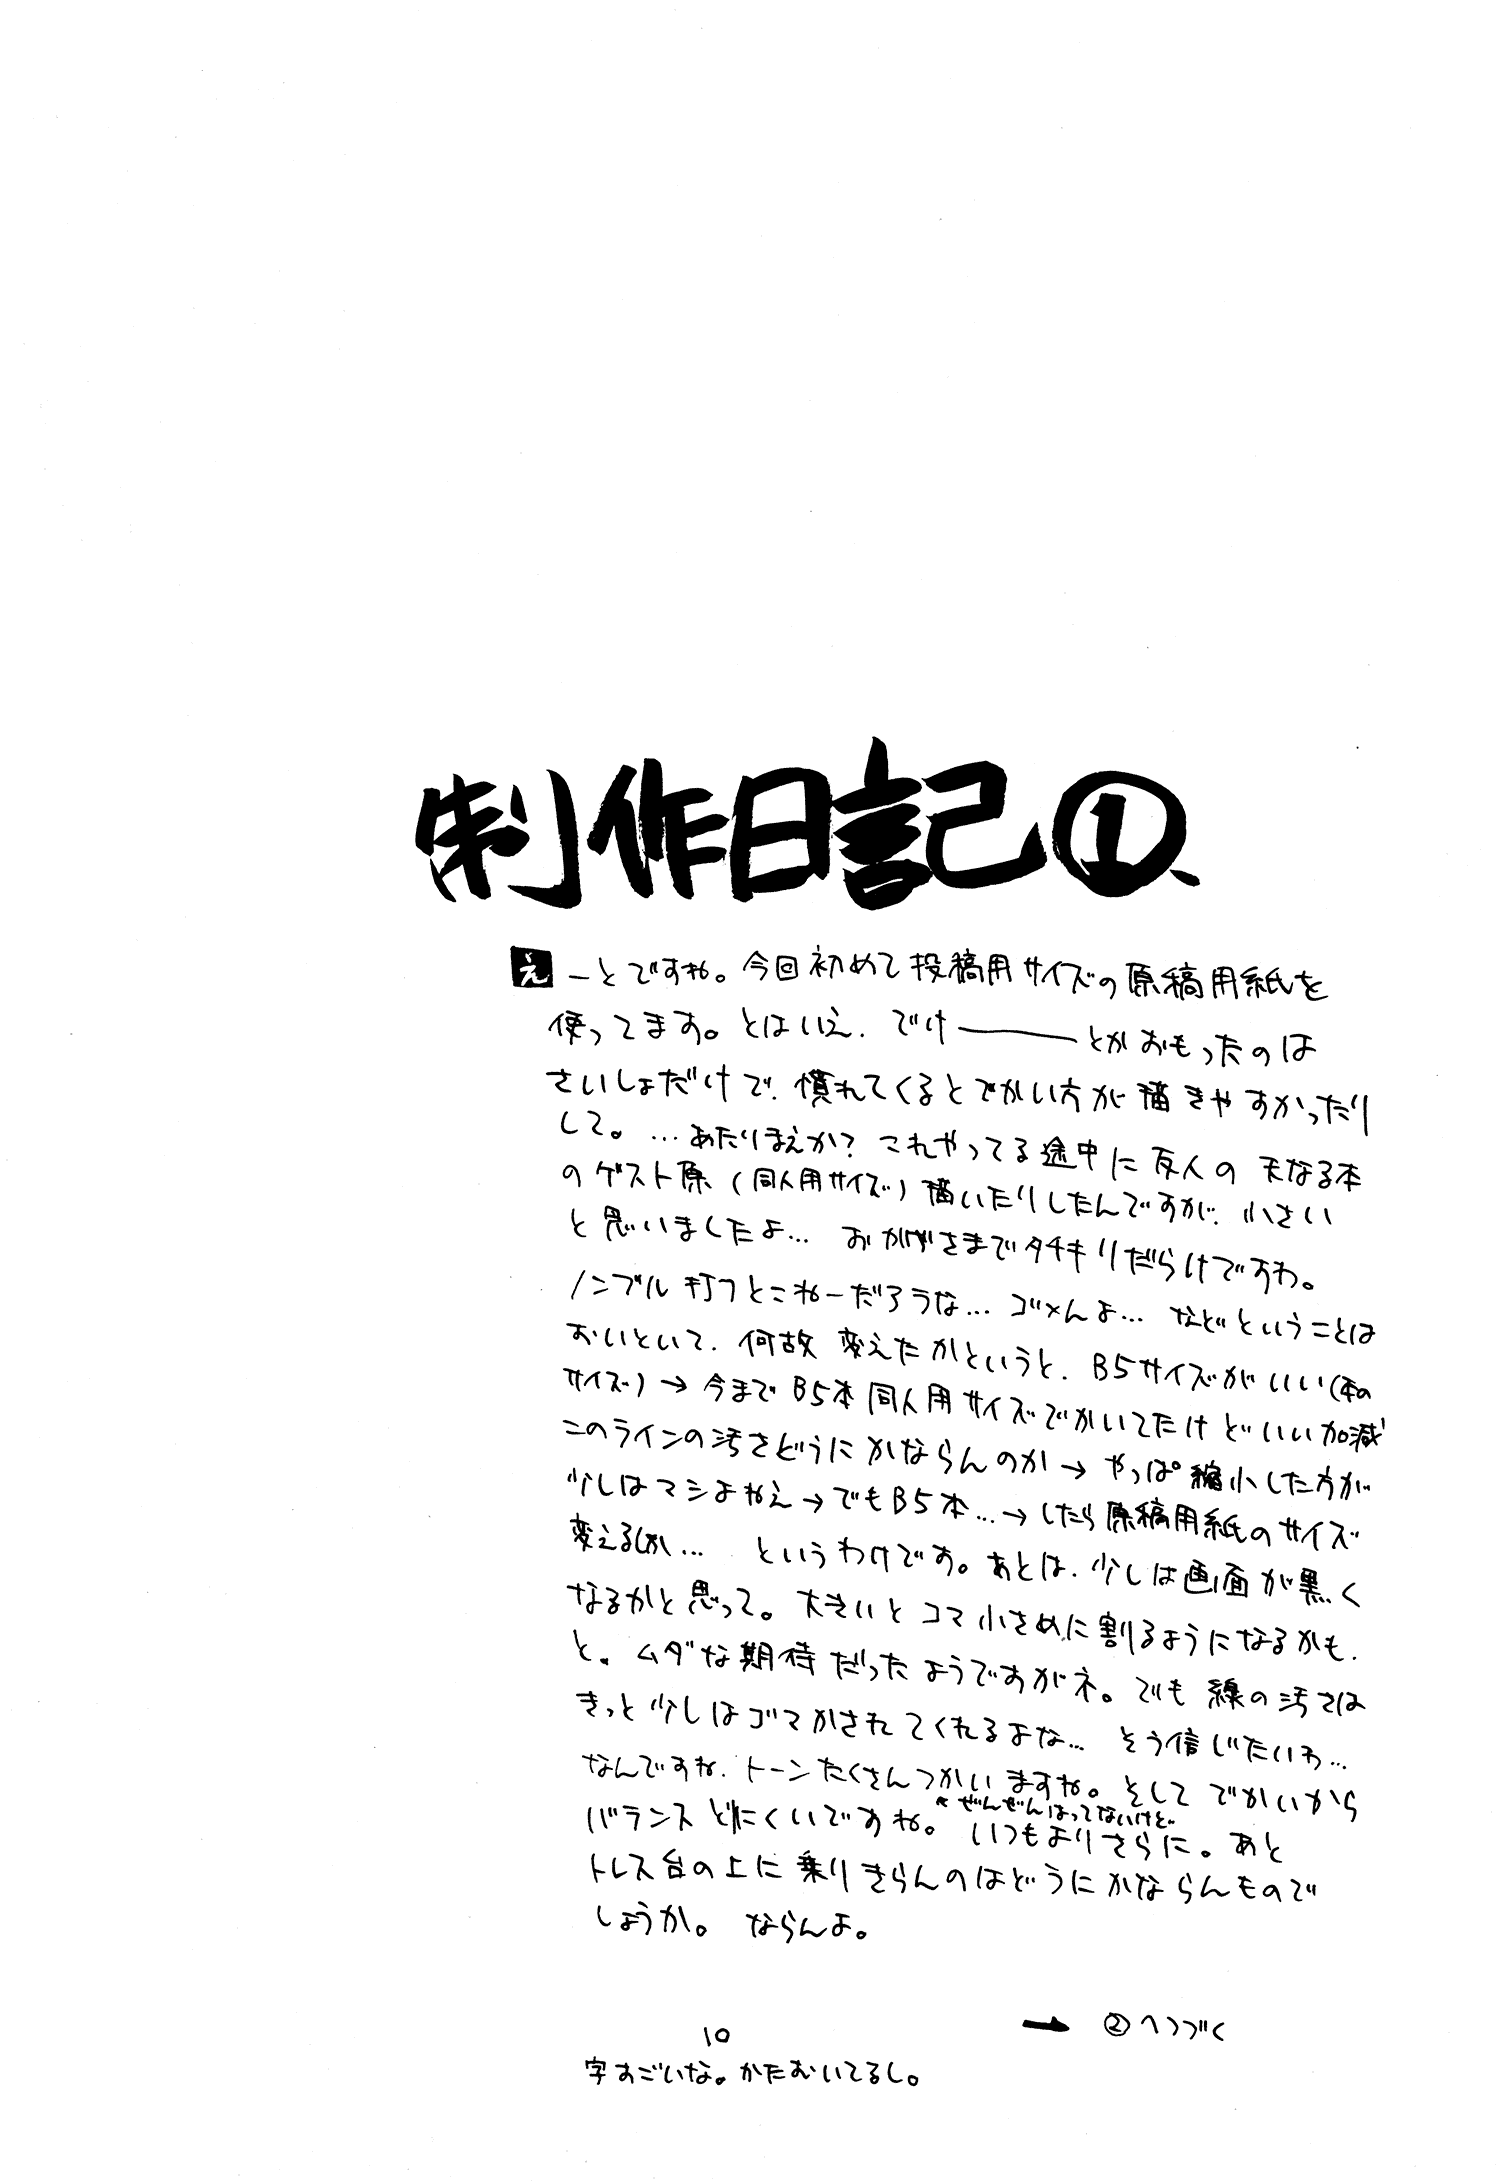 制作日記①、
えーとですね。今回初めて投稿用サイズの原稿用紙を
使ってます。とはいえ、でけ────とかおもったのは
さいしょだけで、慣れてくるとでかい方が描きやすかったり
して。…あたりまえか?これやってる途中に友人の天なる本
のゲスト原(同人用サイズ)描いたりしたんですが、小さい
と思いましたよ…おかげさまでタチキリだらけですわ。
ノンブル打つとこねーだろうな…ゴメんよ…などということは
おいといて、何故変えたかというと、B5サイズがいい(本の
サイズ)→今までB5本同人用サイズでかいてたけどいい加減
このラインの汚さどうにかならんのか→やっぱ縮小した方が
少しはマシよねえ→でもB5本…→したら原稿用紙のサイズ
変えるしか…というわけです。あとは、少しは画面が黒く
なるかと思って。大きいとコマ小さめに割るようになるかも、
と。ムダな期待だったようですがネ。でも線の汚さは
きっと少しはゴマかされてくれるよな…そう信じたいわ…
なんですね、トーンたくさんつかいますね。そしてでかいから
ぜんぜんはってないけど
バランスどりにくいですね。いつもよりさらに。あと
トレス台の上に乗りきらんのはどうにかならんもので
しょうか。ならんよ。
→②へつづく
10
字すごいな。かたむいてるし。